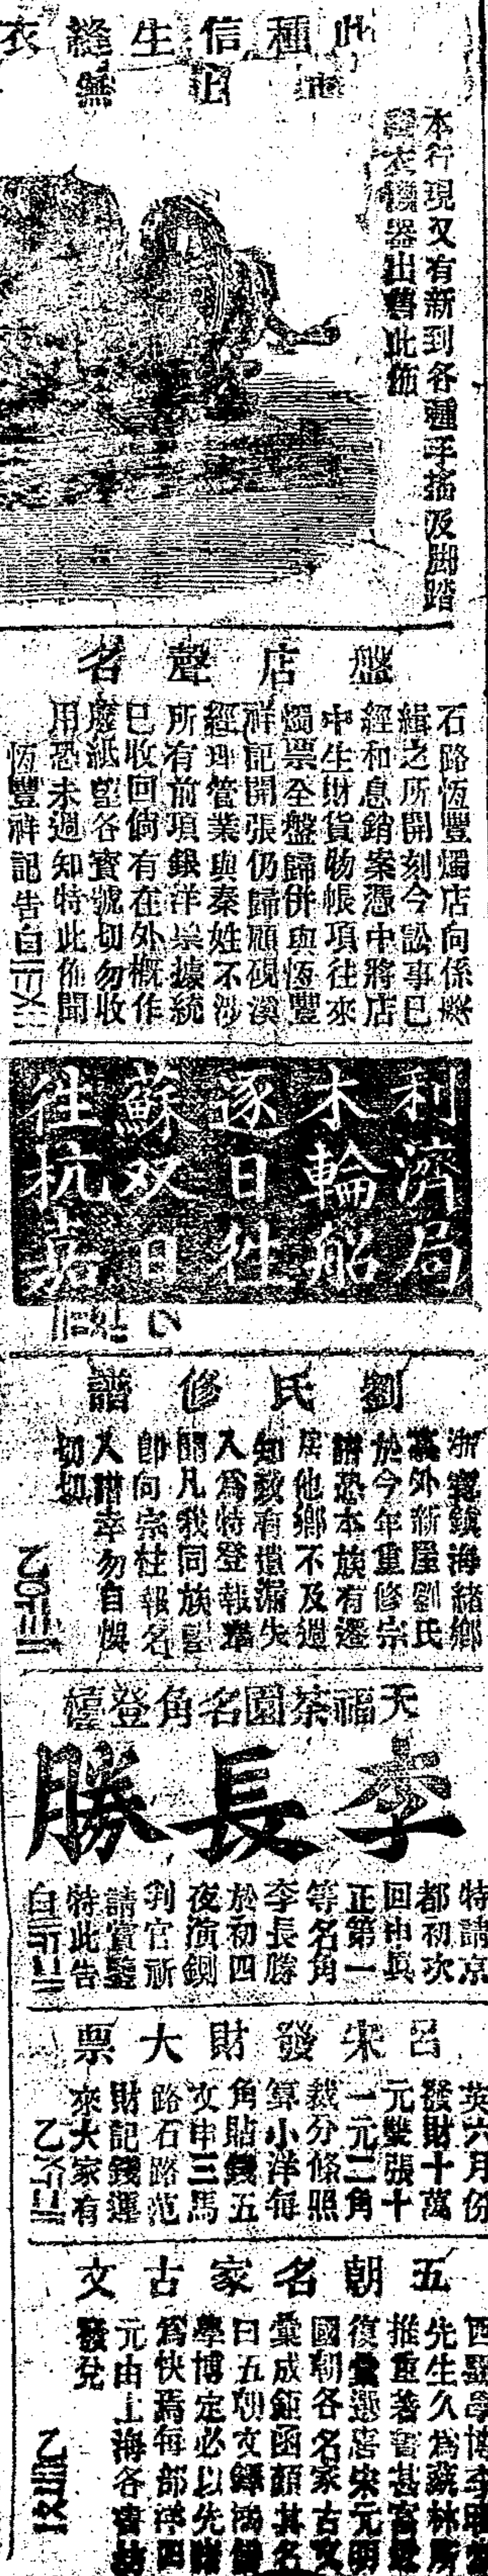 此種信生縫衣
本行現又有新到各種手搖及脚踏
衣機器出售此佈
盤店聲名
石路恆豐燭店向係
緝之所開刻今訟事已
經和息銷案憑中將店
中生財貨物帳項往來
燭票全盤歸併與恆豐
祥記開張仍歸顧硯溪
經理管業與秦姓不涉
所有前項銀洋票據統
已收回倘有在外概作
廢紙望各寳號切勿收
用恐未週知特此佈聞
恆豐祥記告白
利濟局
木輪船
逐日往
蘇双日
往杭嘉
劉氏修譜
浙寗鎮海緒鄉
外新屋劉氏
於今年重修宗
譜恐本族有遷
居他鄉不及週
知致有遺漏失
入爲特登報
聞凡我同族
卽向宗柱報名
入譜幸勿自悞
切切
天福茶園名角登檯
李長勝
特請京
都初次
回申眞
正第一
等名角
李長勝
於初四
夜演鍘
判官祈
請賞鑒
特此告
白
呂宋發財大票
英六月份
發財十萬
元雙張十
一元二角
裁分條照
算小洋每
角貼錢五
文申三馬
路石路范
財記錢運
來大家有
五朝名家古文
先生久爲藝林所
推重著書甚富
復彙選唐宋元明
國朝各名家古文
彙成鉅函顏其名
曰五朝文鐸
學博定必以先睹
爲快焉每部洋四
元由上海各書坊
發兌